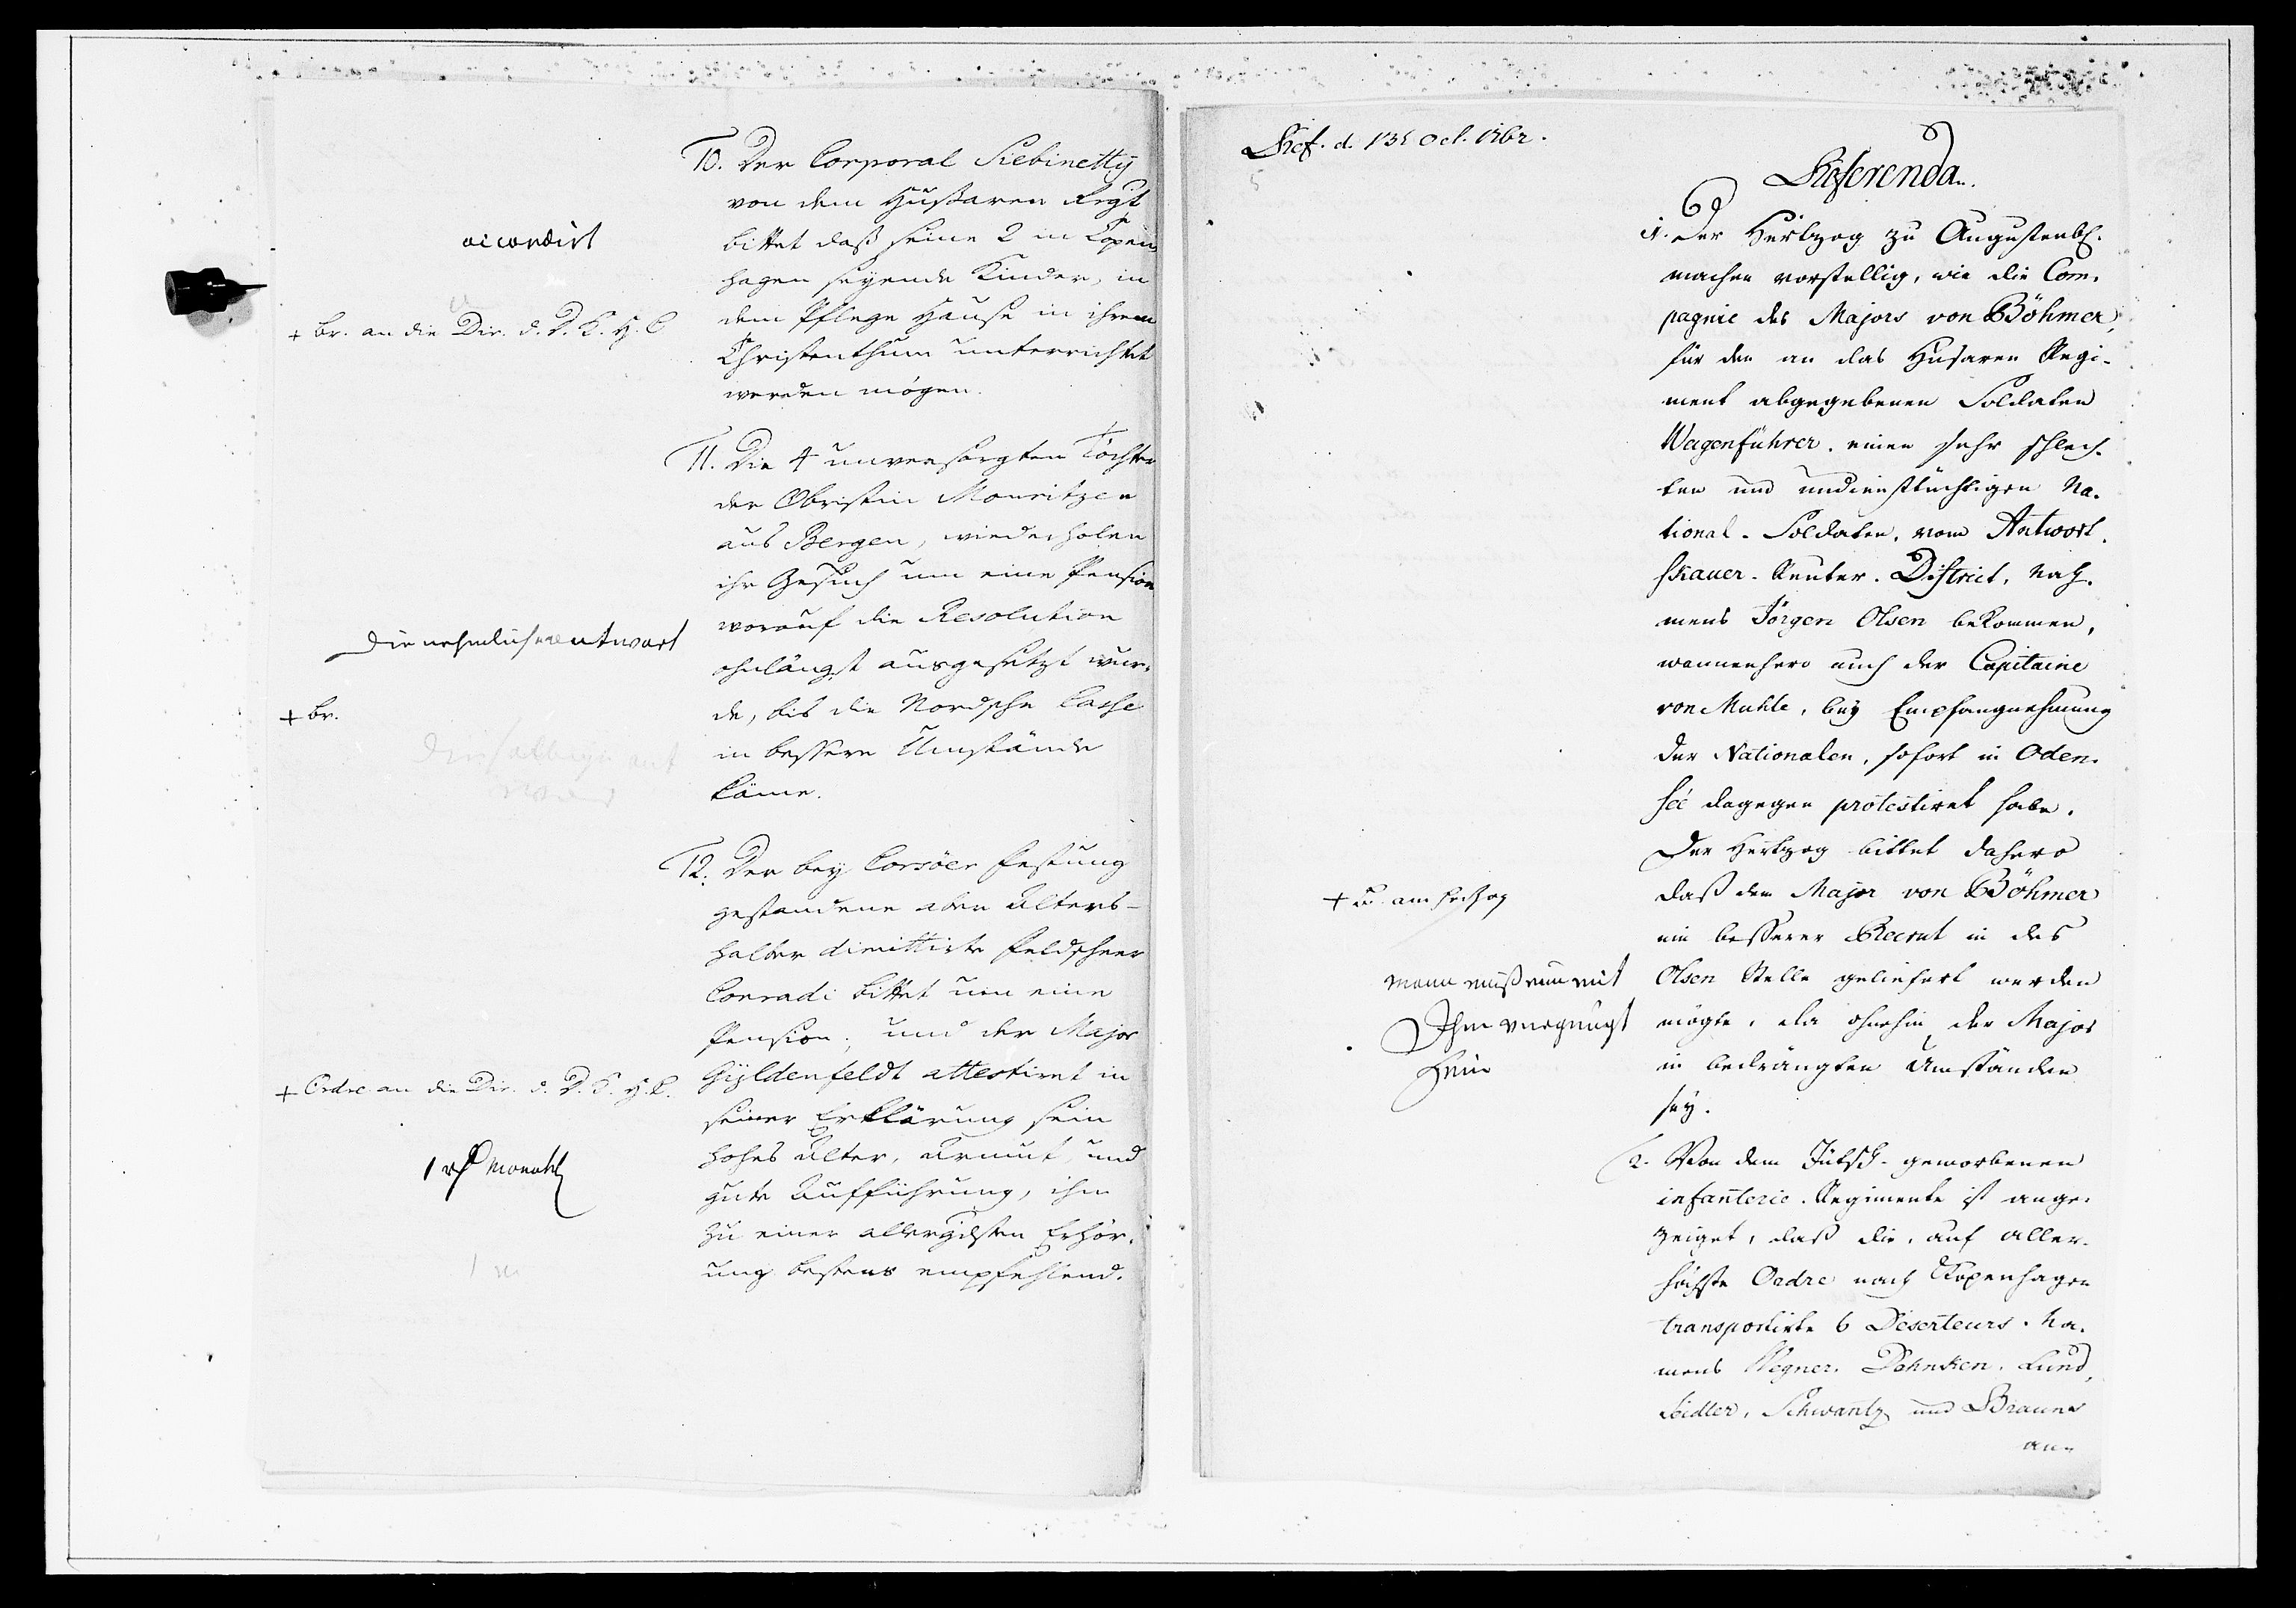 10. Der Corporal Siebinetty
von dem Hußaren Regt
bittet daß seine 2 in Copen
hagen seyende Kinder, in
dem Pflege Hause in ihrem
Christenthum unterrichtet
werden mögen.
accordirt
+ br. an die Dir. d. D. K. H. C
11. Die 4 unversorgten Töchter
der Obristin Mouritzen
aus Bergen, wiederholen
ihr Gesuch um eine Pension
worauf die Resolution
ohnlängst ausgesetzt wur-
de, bis die Nordsche Casse
in bessere Umstände
käme.
Die nehmliche antwort
+ br.
12. Der bey Corsöer Festung
gestandene aber Alters-
halber dimittirte Feldscheer
Conradi bittet um eine
Pension, und der Major
Gyldenfeldt attestiret in
seiner Erklärung sein
hohes Alter, Armut, und
gute Aufführung, ihn
zu einer allergdsten Erhör-
ung bestens empfehlend.
+ Ordre an die Dir. d. D. K. H. C.
1 rf Monahtl
Ref. d. 13t Oct. 1762.
Referenda.
1. Der Hertzog zu Augustenb.
machen vorstellig, wie die Com-
pagnie des Majors von Böhmer,
für den an das Husaren Regi-
ment abgegebenen Soldaten
Wagenführer, einen sehr schlech-
ten und undienstüchtigen Na-
tional-Soldaten, vom Antwort-
skauer-Reuter-District, Nah-
mens Jörgen Olsen bekommen,
wannenhero auch der Capitaine
von Muhle, bey Empfangnehmung
der Nationalen, sofort in Oden-
see dagegen protestiret habe.
Der Hertzog bittet dahero
daß dem Major von Böhmer
ein besserer Recrut in des
Olsen Stelle geliefert werden
mögte, da ohnehin der Major
in bedrängten Umständen
sey.
+ br. am Hertzog
Mann muß nun mit
Ihm vergnügt
sein
2. Von dem Jütsch-geworbenen
infanterie-Regimente ist ange-
zeiget, daß die, auf aller-
höchste Ordre nach Kopenhagen
transportirte 6 Deserteurs, Na-
mens Wegner, Dahnken, Lund,
Seidler, Schwantz und Brauns
an-